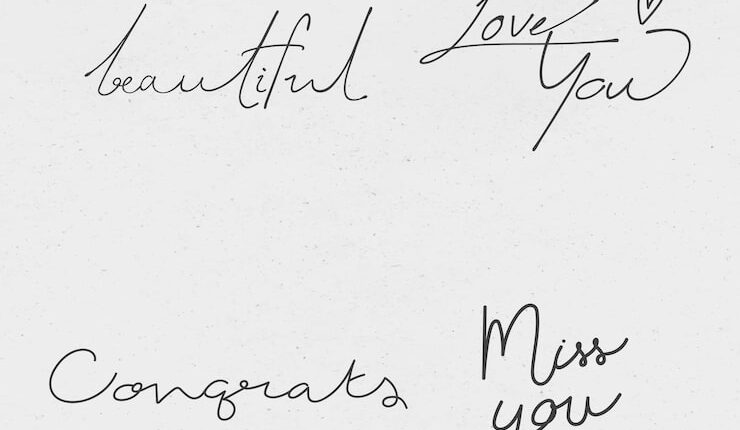 beautiful
Love
You
Congrats
Miss
you